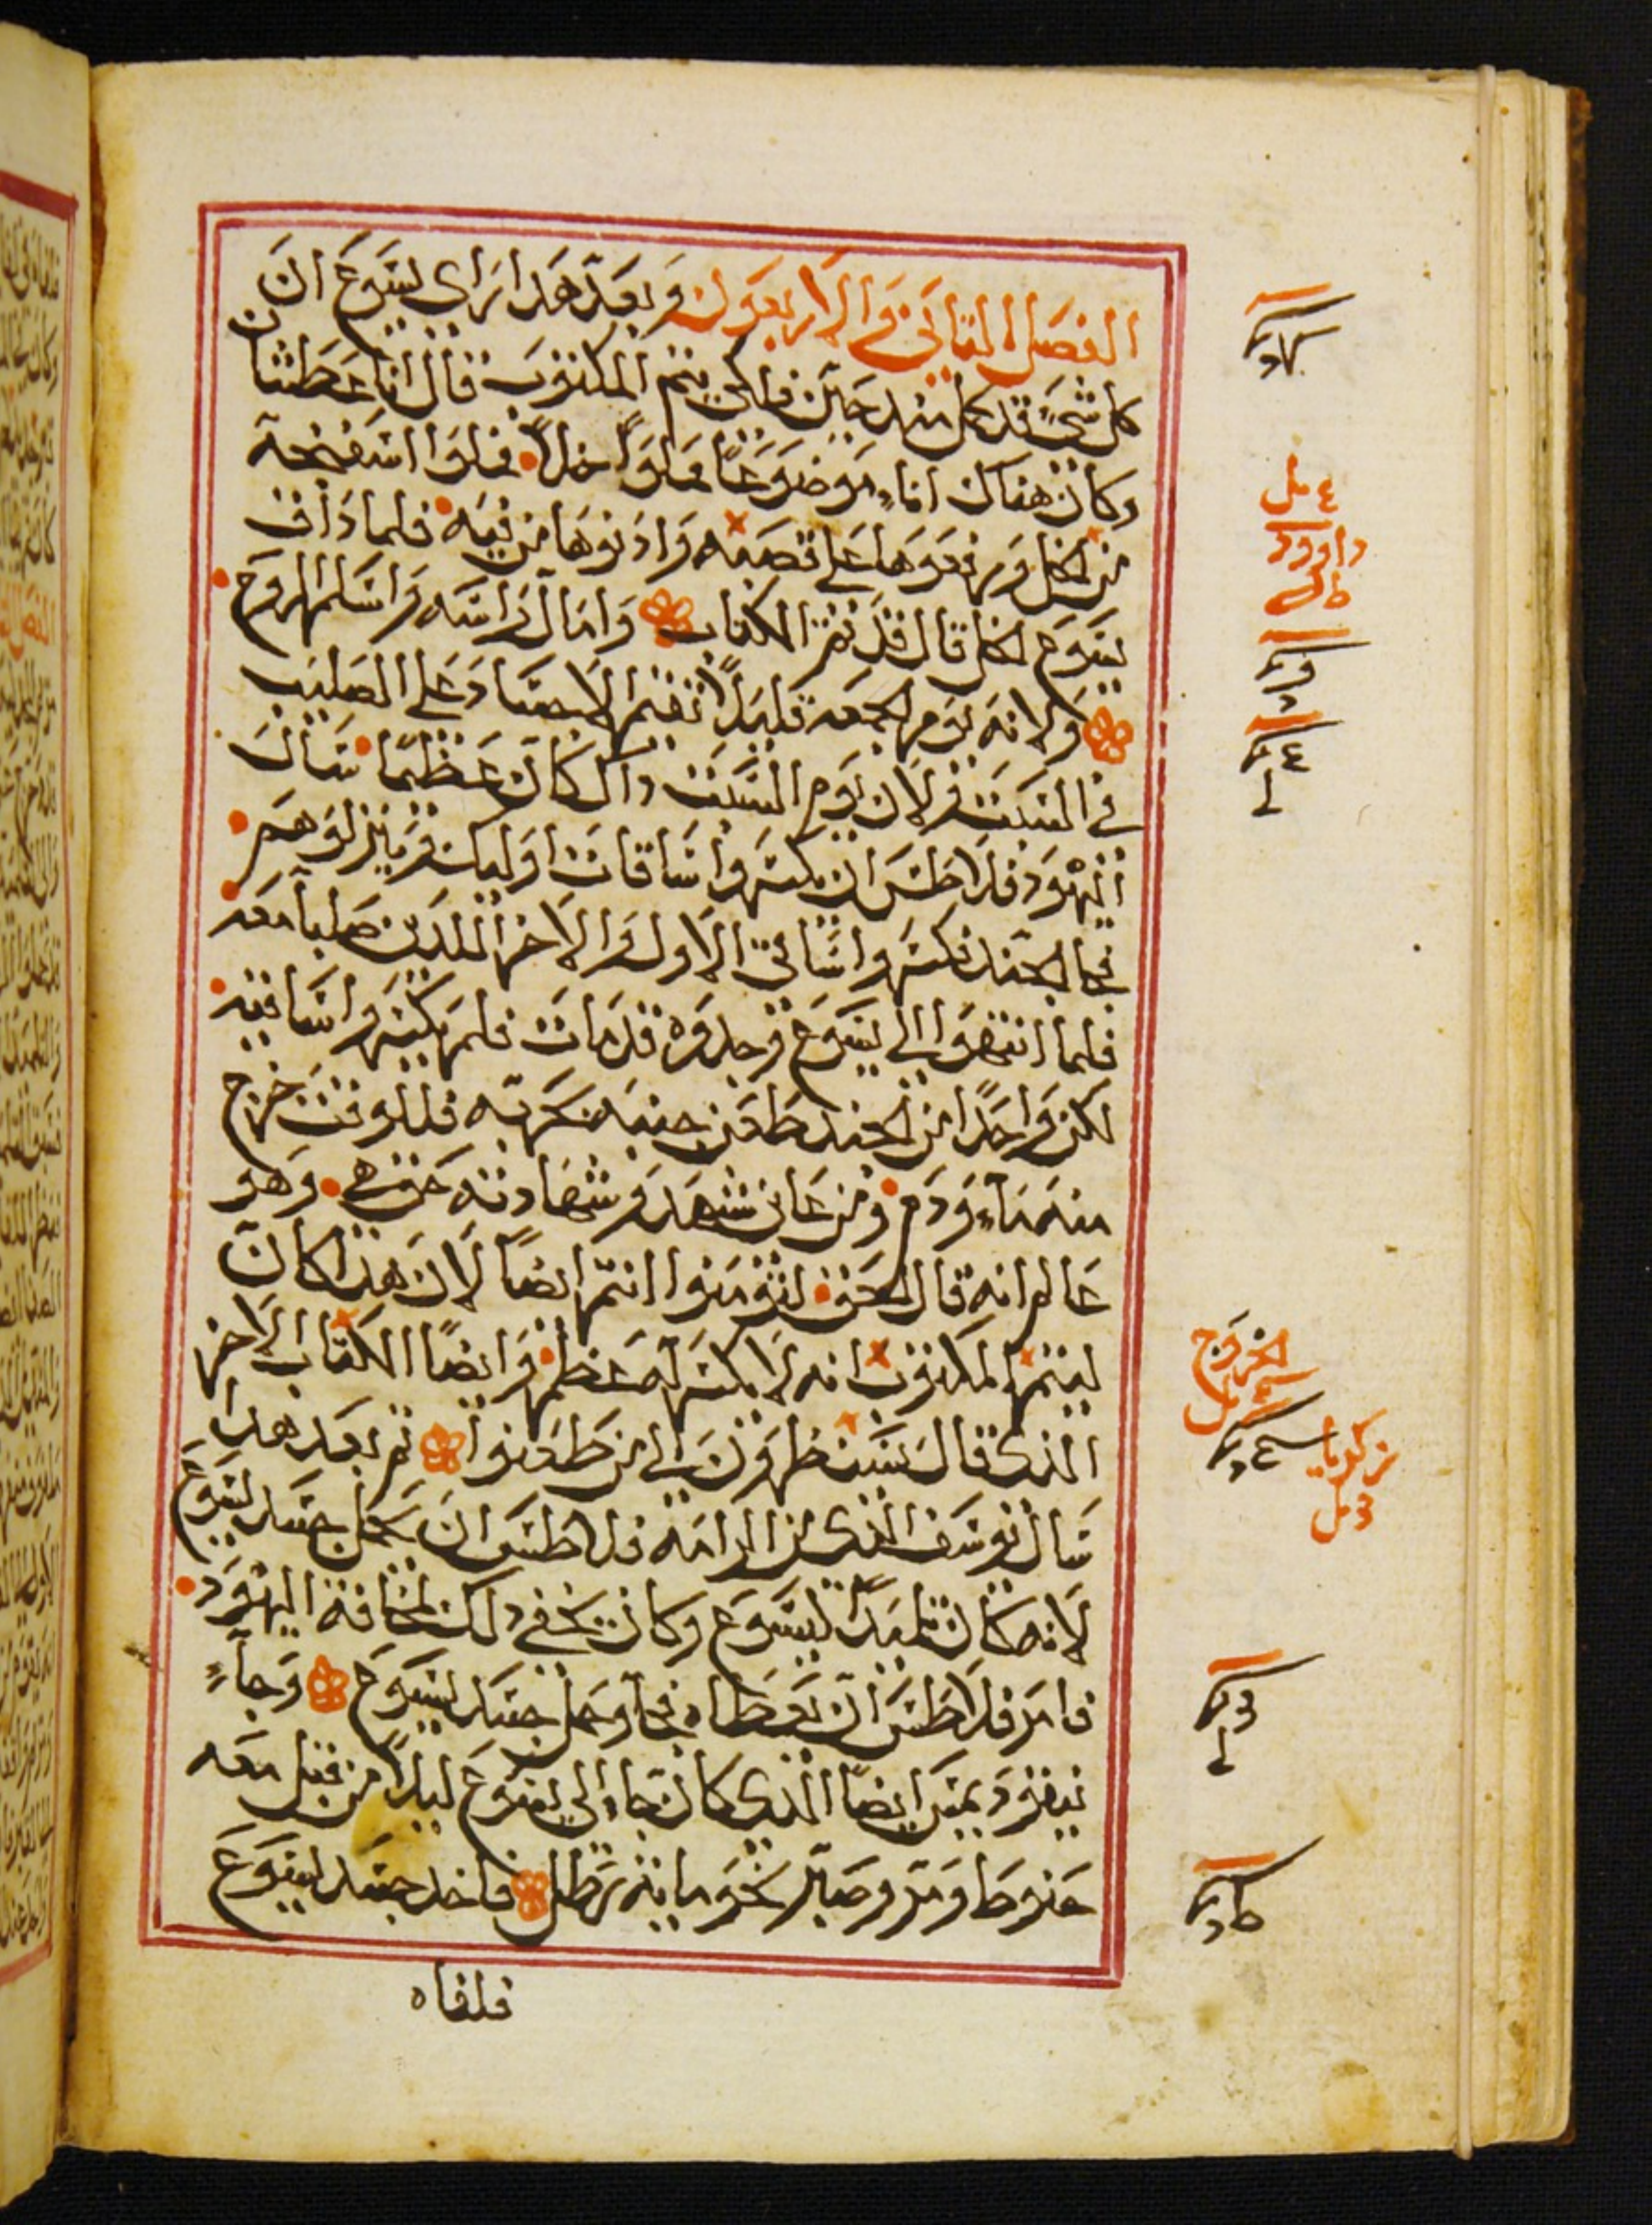 الفصل الثاني والاربعون وبعد هذا راى يسوع ان
كل شي قد كمل منذ حين فلكي يتم المكتوب قال انا عطشان
وكان هناك اناء موضوعًا مملوًا خلًا فملوا اسفنجة
من الخل ورفعوها على قصبه وادنوها من فيه فلما ذاق
يسوع الخل قال قد تم الكتاب وامال راسه واسلم الروح
ولانه يوم الجمعه قليلا تقيم الاجساد على الصليب
في السبت لان يوم السبت داك كان عظيمًا سال
اليهود فلاطس ان يكسروا ساقات اوليك وينزلوهم
فجا الجند فكسروا ساقي الاول والاخر اللدين صلبا معه
فلما انتهوا الى يسوع وجدوه قد مات فلم يكسروا ساقيه
لكن واحدًا من الجند طعن جنبه بحربه فللوقت خرج
منه ماء ودم ومن عاين شهد وشهادته حق هي وهو
عالم انه قال الحق لتومنوا انتم ايضًا لان هذا كان
ليتم المكتوب انه لا يكسر له عظم وايضًا الكتاب الاخر
الذي قال سينظرون الى من طعنوا ثم بعد هدا
سال يوسف الذي من الرامه فلاطس ان يحمل جسد يسوع
لانه كان تلميدًا ليسوع وكان يخفي دلك لمخافة اليهود
فامر فلاطس ان يعطاه فجا وحمل جسد يسوع وجاء
نيقوديمس ايضًا الذي كان جا الى يسوع ليلًا من قبل معه
حنوط ومر وصبر نحو مايه رطل فاخد جسد يسوع
فلفاه
داوود
الخروج
زكريا